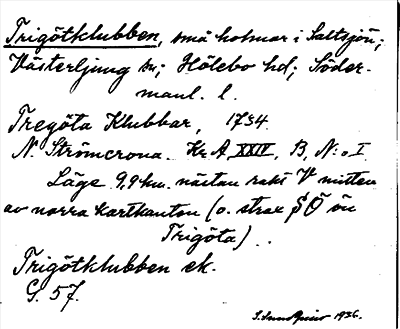 Trigötklubben, små holmar i Saltsjön;
Västerljung sn; Hölebo hd; Söder-
manl. l.
Tregöta Klubbar, 1734.
N. Strömcrona. Kr. A. XXIV, B, N:o I
Läge 9,9 km. nästan rakt V mitten
av norra kartkanten (o. strax SÖ ön
Trigöta).
Trigötklubben ek.
G. 57.
1936.